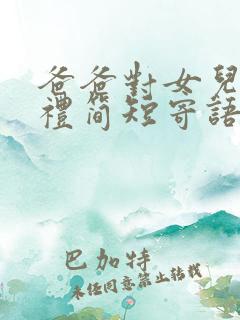 爸爸對女兒
禮简短寄語
巴加特
未经同意禁止转载